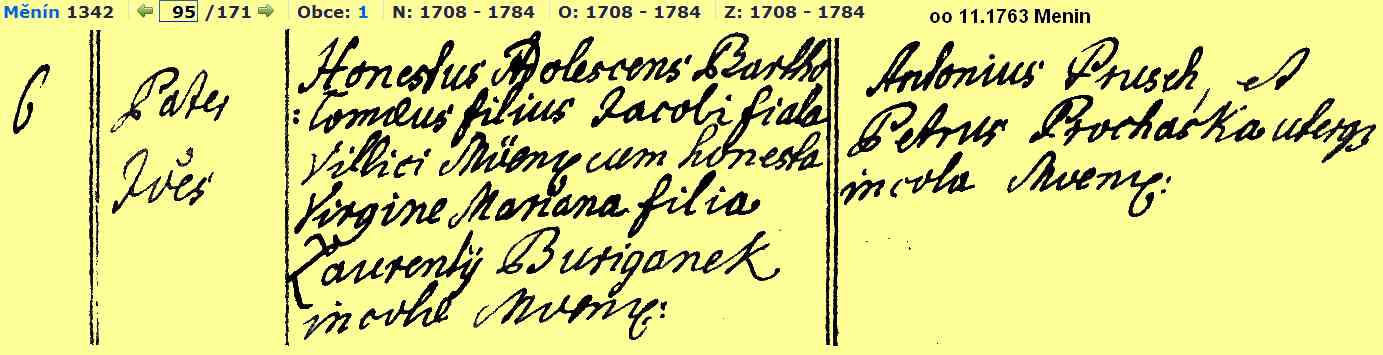 Měnín 1342 95 /171 Obce: 1 N: 1708 - 1784 O: 1708 - 1784 Z: 1708 - 1784
oo 11.1763 Menin
6
Pater
Honestus Adolescens Bartho
:lomæus filius Jacobi fiala
Villici cum honesta
Virgine Mariana filia
Laurentÿ Buriganek
incolæ
Antonius Prusch, et
Petrus Prochaska
incola